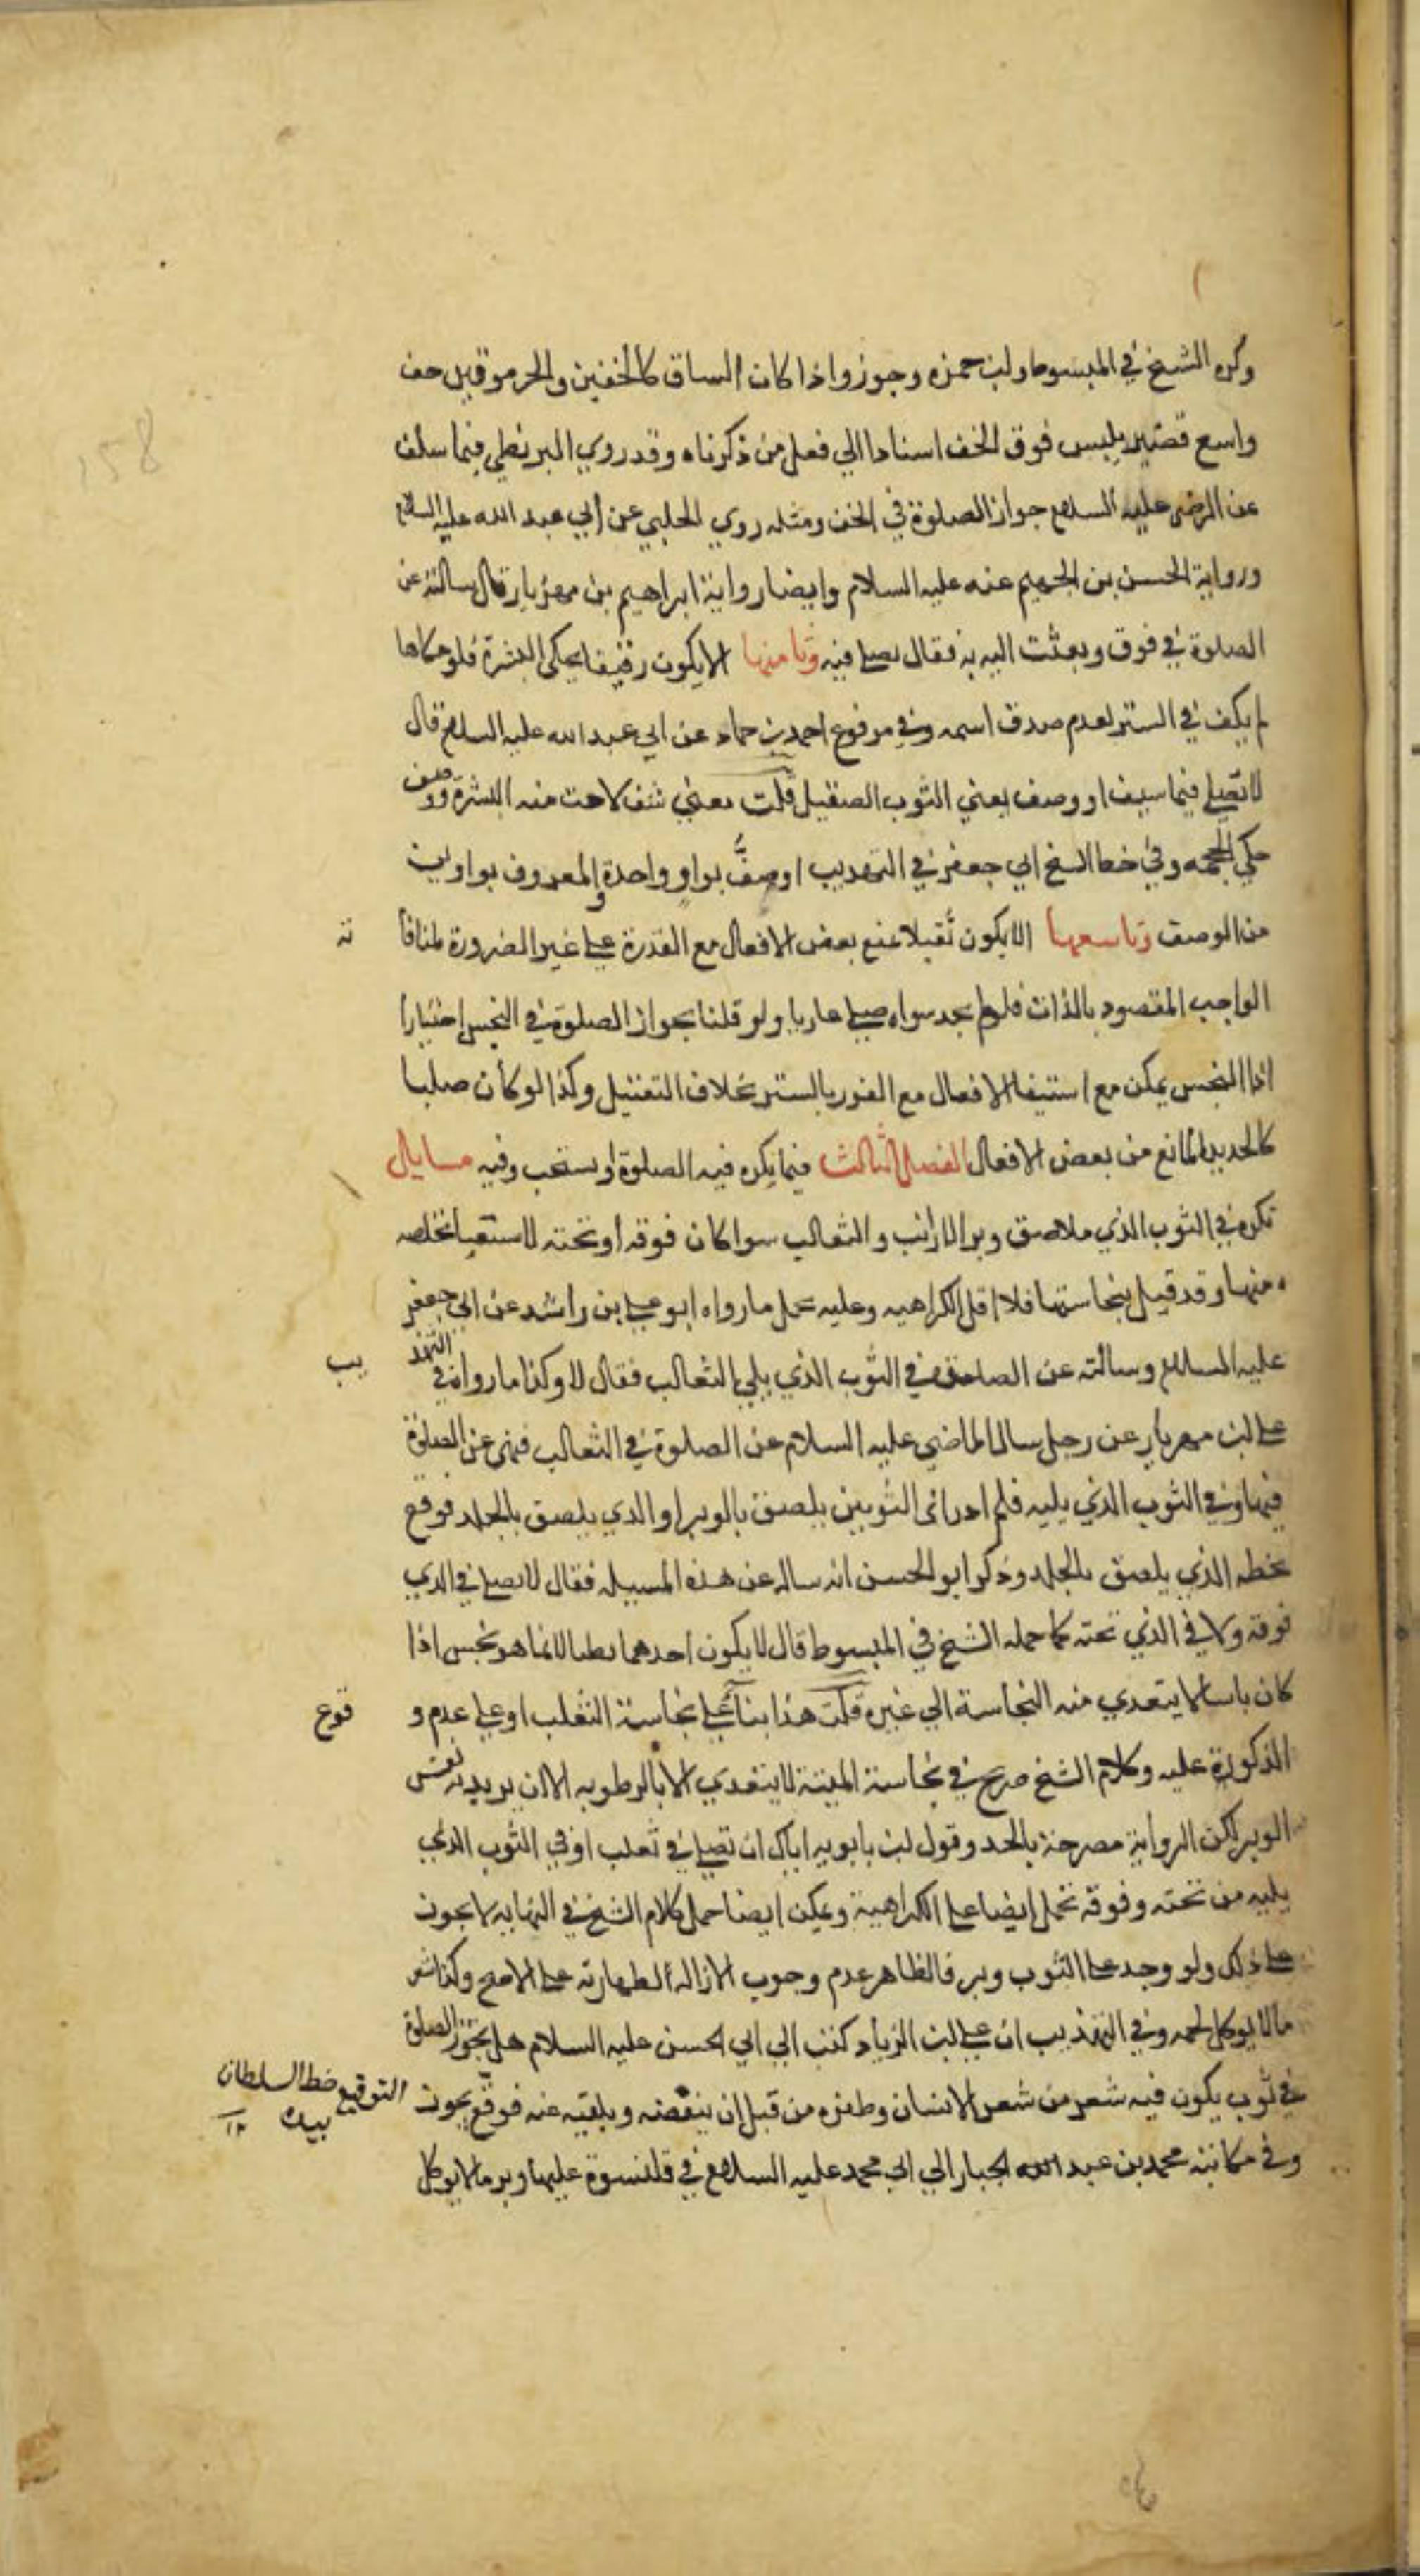 158
وكره الشيخ في المبسوط وابن حمزه وجوزوا اذا كان الساق كالخفين والجرموق قيل خف
واسع قصير يلبس فوق الخف اسنادا الي فعل من ذكرناه وقد روي البزنطي فيما سلف
عن الرضى عليه السلام جواز الصلوة في الخف ومثله روي الحلبي عن ابي عبد الله عليه السلام
ورواية الحسن بن الجهيم عنه عليه السلام وايضا رواية ابراهيم بن مهزيار قال سالته عن
الصلوة في فوق وبعثت اليه به فقال يصلي فيه وثامنها الايكون رقيقا يحكى البشرة فلو حكاها
لم يكف في الستر لعدم صدق اسمه وفي مرفوع احمد بن حماد عن ابي عبد الله عليه السلام قال
لا تصلي فيما سيف او وصف يعني الثوب الصقيل قلت معني شف لاحت منه البشرة ووصف
حكي الحجمه وفي خط الشيخ ابي جعفر في التهذيب او صفَّ بواو واحدة والمعروف بواوين
من الوصف وتاسعها الايكون ثقيلا يمنع بعض الافعال مع القدرة علي غير الضرورة لمنافا ته
الواجب المقصود بالذات فلو لم يجد سواه صلي عاريا ولو قلنا بجواز الصلوة في النجس اختيارا
اذا النجس يمكن مع استيفا الافعال مع الفور بالستر بخلاف الثقيل وكذا لو كان صلبا
كالحديد المانع من بعض الافعال الفصل الثالث فيما يكره فيه الصلوة او يستحب وفيه مسايل
تكره في الثوب الذي ملاصق وبر الارانب والثعالب سوا كان فوقه او تحته لاستصحاب تخلصه
منها وقد قيل بنجاستها فلا اقل الكراهيه وعليه يحمل ما رواه ابو علي بن راشد عن ابي جعفر
عليه السلام وسالته عن الصلوة في الثوب الذي يلي الثعالب فقال لا وكذا ما رواه في التهذ يب
علي ابن مهزيار عن رجل سال الماضي عليه السلام عن الصلوة في الثعالب فنهى عن الصلوة
فيها وفي الثوب الذي يليه فلم ادر اى الثوبين يلصق بالوبر او الذي يلصق بالجلد فوقع
بخطه الذي يلصق بالجلد وذكر ابو الحسن انه ساله عن هذه المسيله فقال لا يصلي في الذي
فوقه ولا في الذي تحته كما حمله الشيخ في المبسوط قال لا يكون احدهما رطبا لانما هو نجس اذا
كان يابسا لا يتعدي منه النجاسة الي غيره قلت هذا بناءً علي نجاسة الثعلب او علي عدم و قوع
الذكورة عليه وكلام الشيخ صريح في نجاسة الميتة لا يتعدي الا بالرطوبه الا ان يريد به نفس
الوبر لكن الرواية مصرحة بالجلد وقول ابن بابويه اياك ان تصلي في ثعلب او في الثوب الذي
يليه من تحته وفوقه تحمل ايضا علي الكراهية ويمكن ايضا حمل كلام الشيخ في النهايه لا يجوز
علي ذلك ولو وجد علي الثوب وبر فالظاهر عدم وجوب الازاله لطهارته علي الاصح وكذا شعر
ما لا يوكل لحمه وفي التهذيب ان علي ابن الزياد كتب الي ابي الحسن عليه السلام هل يجوز الصلوة
في ثوب يكون فيه شعر من شعر الانسان وظفره من قبل ان ينفضه ويلقيه عنه فوقع يجوز
التوقيع خط السلطان بيده ١٢
وفي مكاتبة محمد بن عبد الله الجبار الي ابي محمد عليه السلام في قلنسوة عليها وبر ما لا يوكل